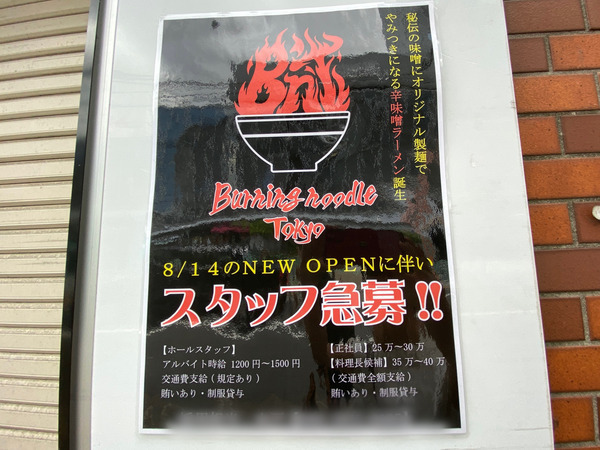 秘伝の味噌にオリジナル製麺で
やみつきになる辛味噌ラーメン誕生
BnT
Burning noodle
Tokyo
8/14のNEW OPENに伴い
スタッフ急募!!
【ホールスタッフ】
アルバイト時給 1200円〜1500円
交通費支給(規定あり)
賄いあり・制服貸与
【正社員】25万〜30万
【料理長候補】35万〜40万
(交通費全額支給)
賄いあり・制服貸与